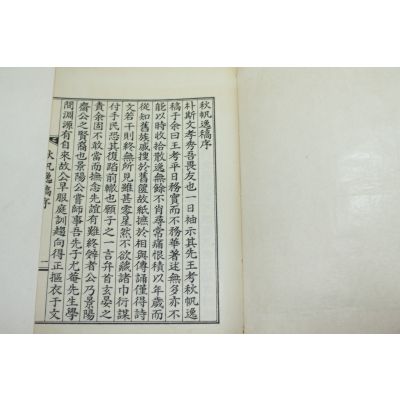 秋帆逸稿序
朴斯文孝秀吾畏友也一日袖示其先王考秋帆逸
稿于余曰王考平日務實而不務華著述無多亦不
能以時收拾散逸無餘不肖尋常痛恨積以年歲而
從知舊族戚搜於舊篋故紙摭於相與傳誦僅得詩
文若干則終無所見雖甚零星然不欲藏諸巾衍謀
付手民恐其復蹈前轍也願子之一言弁首玄晏之
責余固不敢當而撫念先誼有難終辭者公乃景陽
齋公之賢裔也景陽公嘗師事吾先子尤菴先生學
問淵源有自來故公早服庭訓趨向得正摳衣于文
秋帆逸稿序
一